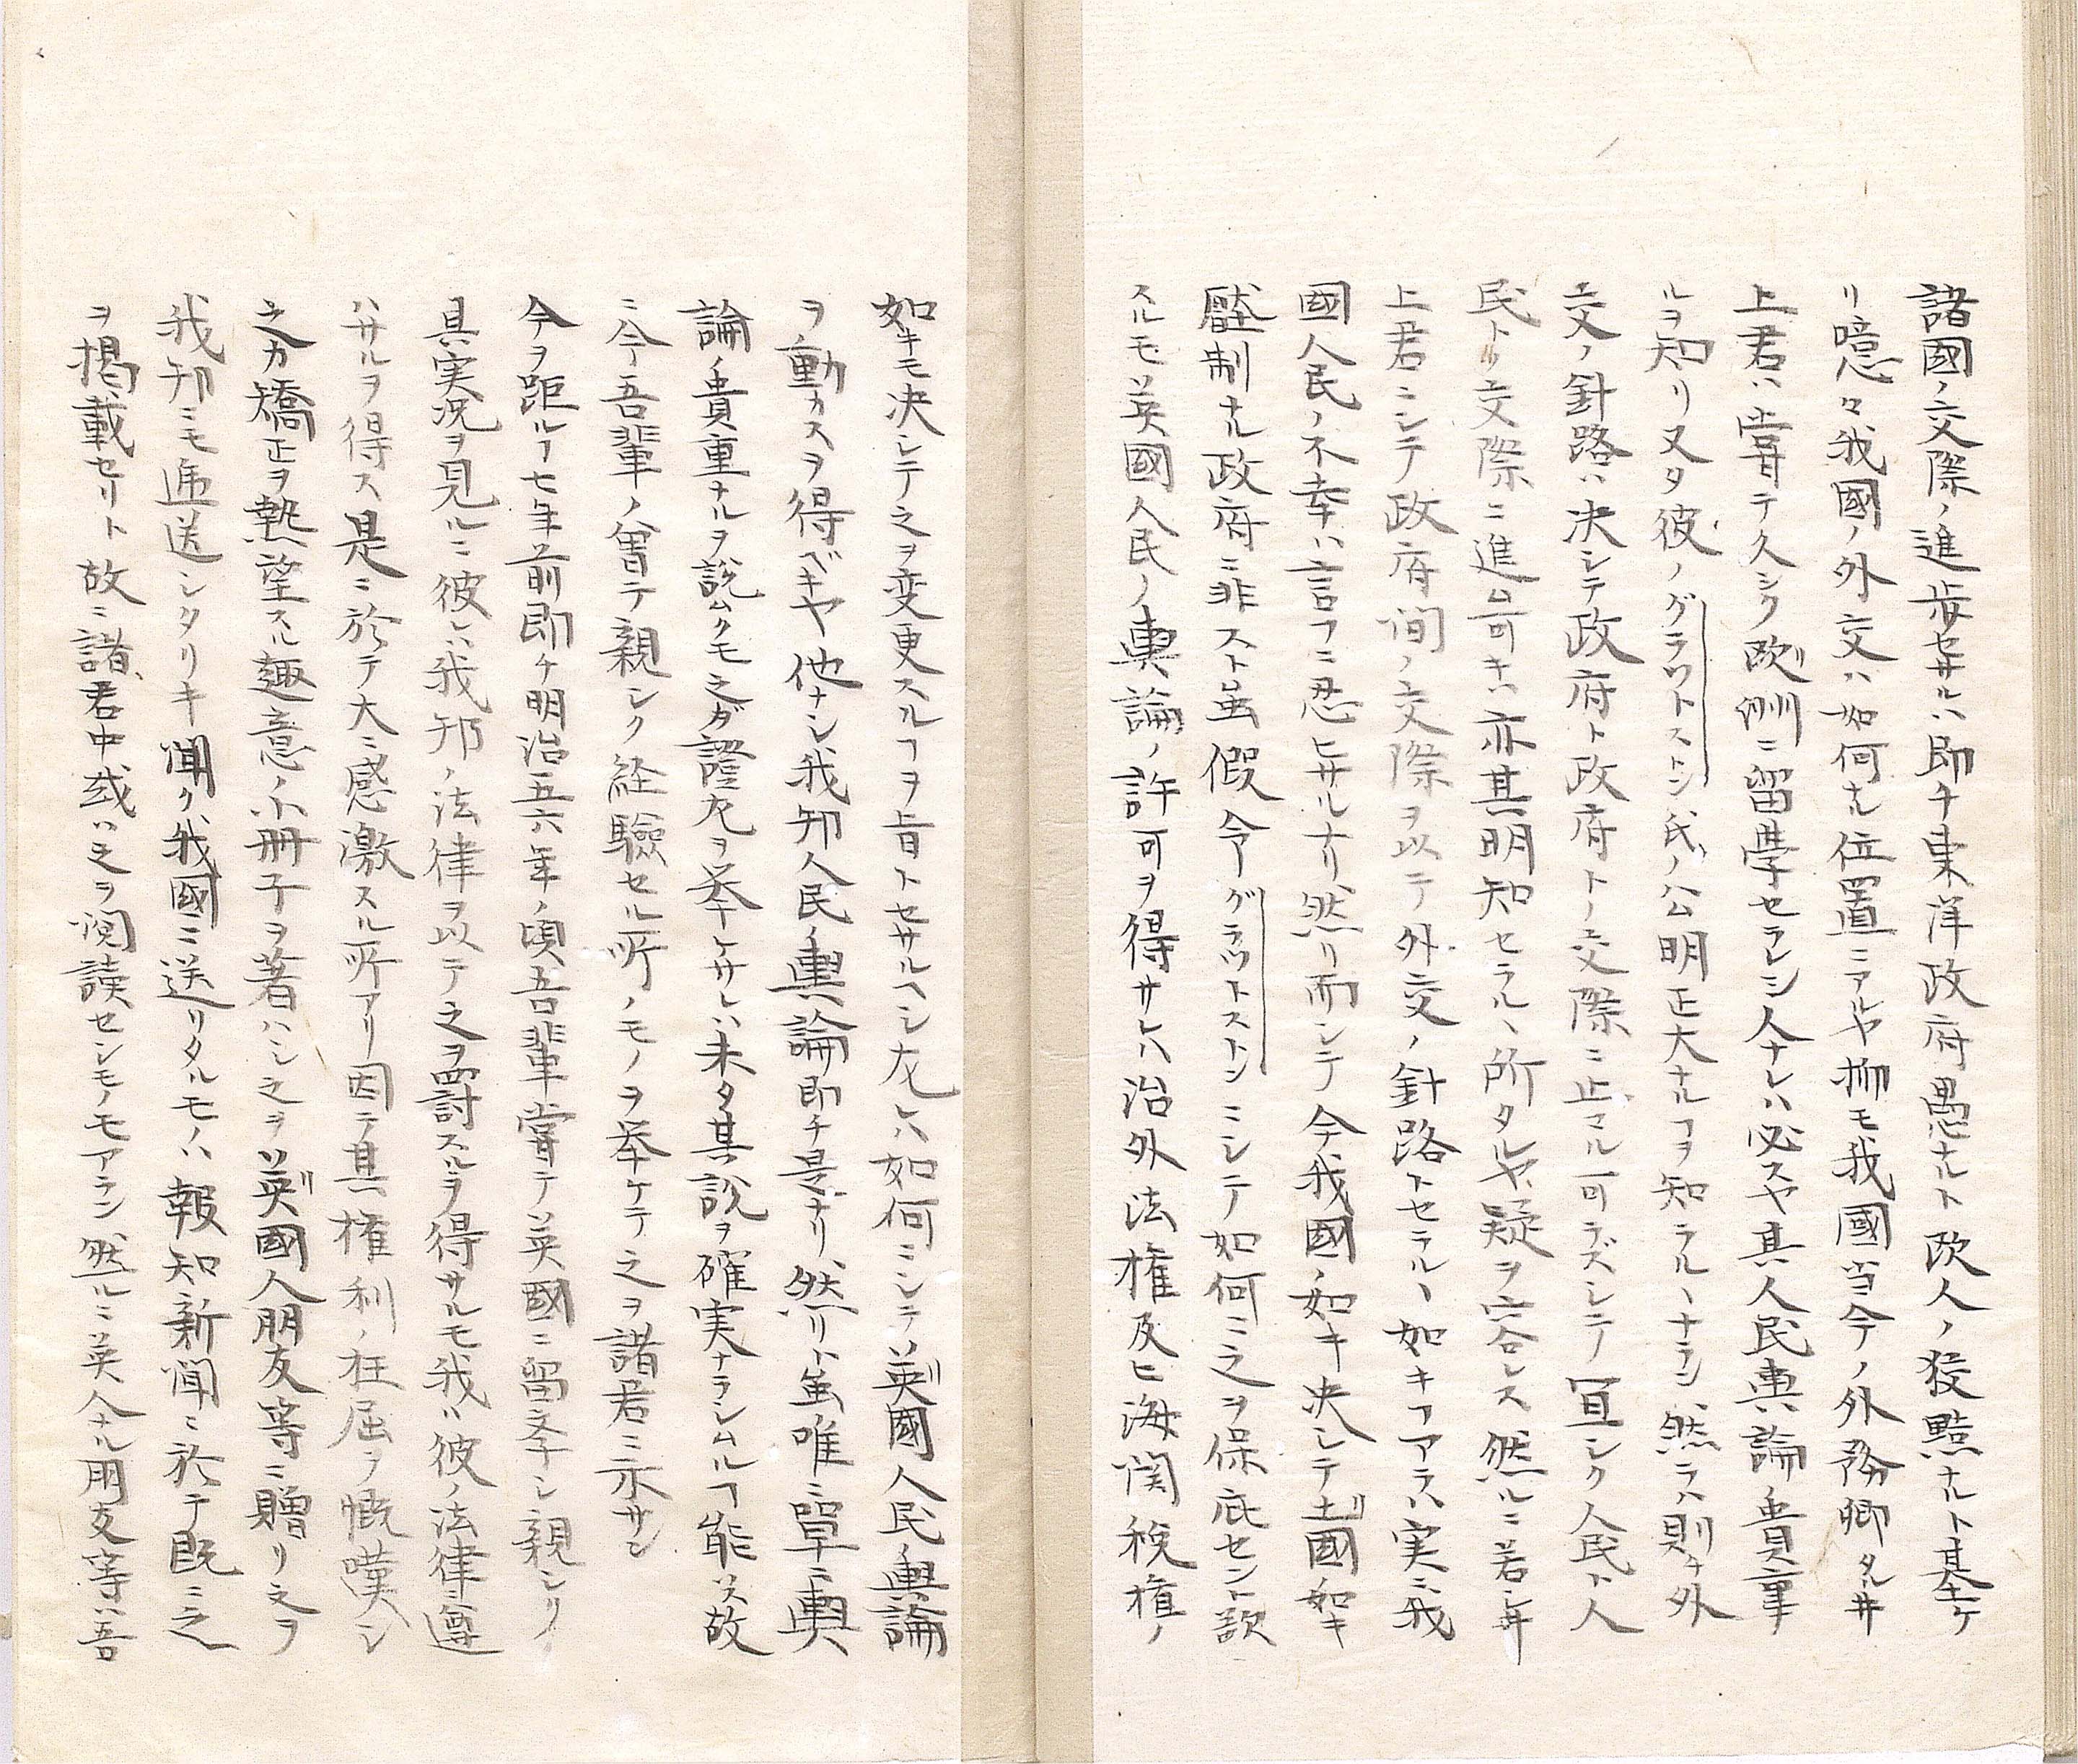 諸國ノ交際ノ進歩セサルハ即チ東洋政府ノ愚ナルト欧人ノ狡黠ナルト基ケ
リ噫々我國ノ外交ハ如何ナル位置ニアルヤ抑モ我國当今ノ外務卿タル井
上君ハ嘗テ久シク欧洲ニ留學セラレシ人ナレハ必スヤ其人民輿論ノ貴重ナ
ルヲ知リ又タ彼ノグラットストン氏ノ公明正大ナルヿヲ知ラル、ナラン然ラハ則チ外
交ノ針路ハ决シテ政府ト政府トノ交際ニ止マル可ラズシテ宜シク人民ト人
民トノ交際ニ進ム可キハ亦其明知セラル、所タルヤ疑ヲ容レス然ルニ若シ井
上君ニシテ政府间ノ交際ヲ以テ外交ノ針路トセラル、如キヿアラハ実ニ我
國人民ノ不幸ハ言フニ忍ヒサルナリ然リ而シテ今我國ノ如キ决シテ土国ノ如キ
壓制ナル政府ニ非スト虽假令グラットストンニシテ如何ニ之ヲ保庇セント欲
スルモ英國人民ノ輿論ノ許可ヲ得サレハ治外法権及ヒ海関税権ノ
如キモ决シテ之ヲ変更スルヿヲ肯トセサルヘシ左レハ如何ニシテ英國人民ノ輿論
ヲ動カスヲ得ベキヤ他ナシ我邦人民ノ輿論即チ是ナリ然リト虽唯ニ單ニ輿
論ノ貴重ナルヲ説ムクモ之ガ證左ヲ挙ケサレハ未タ其説ヲ確実ナラシムルヿ能ハス故
ニ今ー吾輩ノ曽テ親シク経驗セル所ノモノヲ挙ケテ之ヲ諸君ニ示サン
今ヲ距ルヿ七年前即チ明治五六年ノ頃吾輩嘗テ英國ニ留斈シ親シク
其実况ヲ見ルニ彼レハ我邦ノ法律ヲ以テ之ヲ罸スルヲ得サルモ我ハ彼ノ法律ニ遵
ハサルヲ得ス是ニ於テ大ニ感激スル所アリ因テ其権利ノ枉屈ヲ慨嘆シ
之カ矯正ヲ熱望スル趣意ノ小冊子ヲ著ハシ之ヲ英國人朋友等ニ贈リ又ヲ
我邦ニモ逓送シタリキ聞ク我國ニ送リタルモノハ報知新聞ニ於テ既ニ之
ヲ掲載セリト故ニ諸君中或ハ之ヲ閲読センモノモアラン然ルニ英人ナル朋友等ハ吾